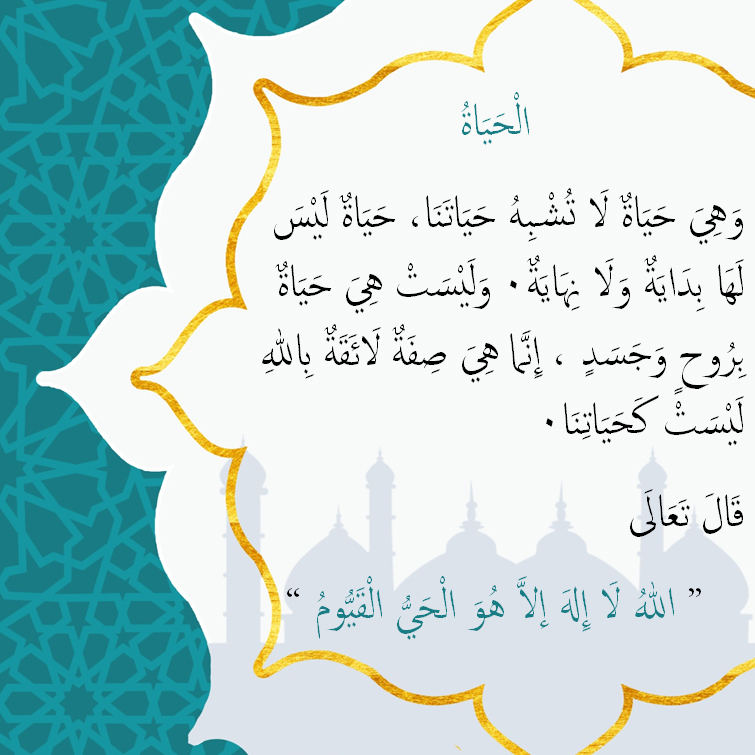 الْحَيَاةُ
وَهِيَ حَيَاةٌ لَا تُشْبِهُ حَيَاتَنَا، حَيَاةٌ لَيْسَ
لَهَا بِدَايَةٌ وَلَا نِهَايَةٌ. وَلَيْسَتْ هِيَ حَيَاةٌ
بِرُوحٍ وَجَسَدٍ ، إِنَّمَا هِيَ صِفَةٌ لَائَقَةٌ بِاللهِ
لَيْسَتْ كَحَيَاتِنَا.
قَالَ تَعَالَى
” اللهُ لَا إِلهَ إلاَّ هُوَ الْحَيُّ الْقَيُّومُ “